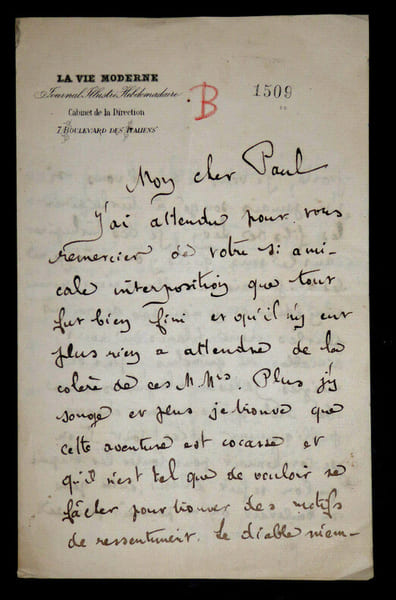 LA VIE MODERNE
Journal Illustré Hebdomadaire
Cabinet de la Direction
7 BOULEVARD DES ITALIENS
B
1509
Mon cher Paul
J'ai attendu pour vous
remercier de votre si ami-
cale interposition que tout
fut bien fini et qu'il n'y eut
plus rien a attendre de la
colère de ces MMrs. Plus j'y
songe et plus je trouve que
cette aventure est cocasse et
qu'il n'est tel que de vouloir se
fâcher pour trouver des motifs
de ressentiment. Le diable m'em-